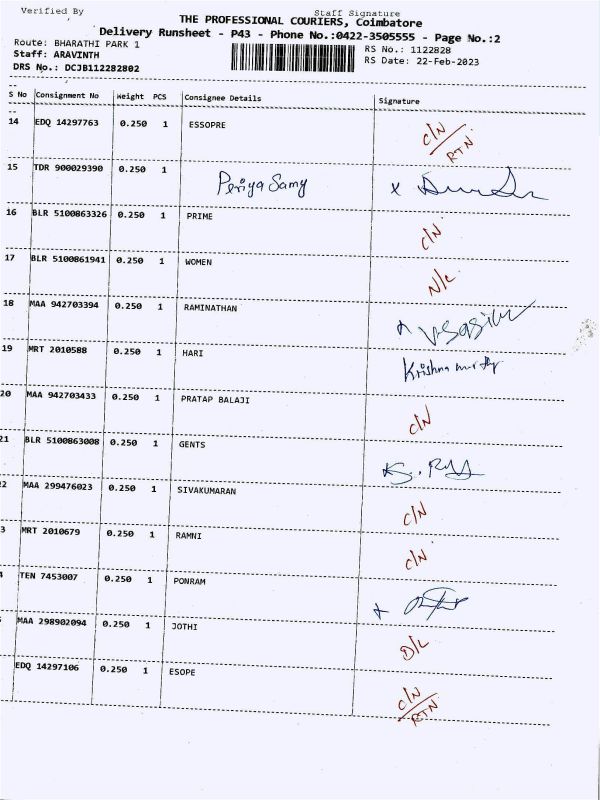 Verified By Staff Signature
THE PROFESSIONAL COURIERS, Coimbatore
Delivery Runsheet - P43 - Phone No.:0422-3505555 - Page No.:2
Route: BHARATHI PARK 1 RS No.: 1122828
Staff: ARAVINTH RS Date: 22-Feb-2023
DRS No.: DCJB112282802
S No Consignment No Weight PCS Consignee Details Signature
14 EDQ 14297763 0.250 1 ESSOPRE C/N
RTN
15 TDR 900029390 0.250 1 Periya Samy x
16 BLR 5100863326 0.250 1 PRIME C/N
17 BLR 5100861941 0.250 1 WOMEN N/C
18 MAA 942703394 0.250 1 RAMINATHAN
19 MRT 2010588 0.250 1 HARI Krishna murthy
20 MAA 942703433 0.250 1 PRATAP BALAJI C/N
21 BLR 5100863008 0.250 1 GENTS
2 MAA 299476023 0.250 1 SIVAKUMARAN C/N
3 MRT 2010679 0.250 1 RAMNI C/N
4 TEN 7453007 0.250 1 PONRAM
MAA 298902094 0.250 1 JOTHI D/L
EDQ 14297106 0.250 1 ESOPE C/N
RTN